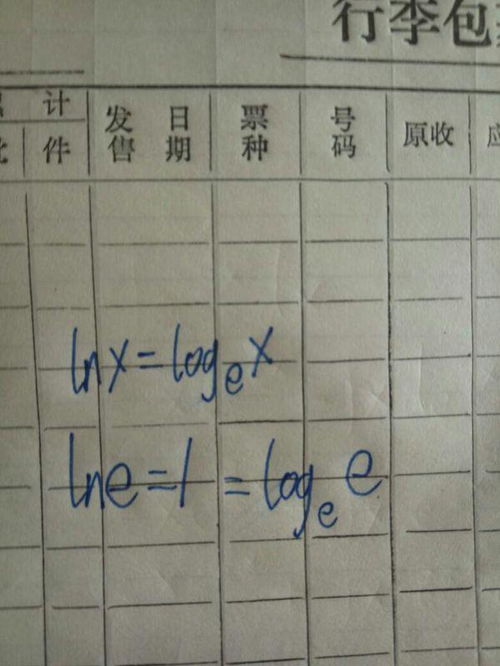 行李包
计
件
发售
日期
票种
号码
原收
ln x = logₑ x
ln e = 1 = logₑ e